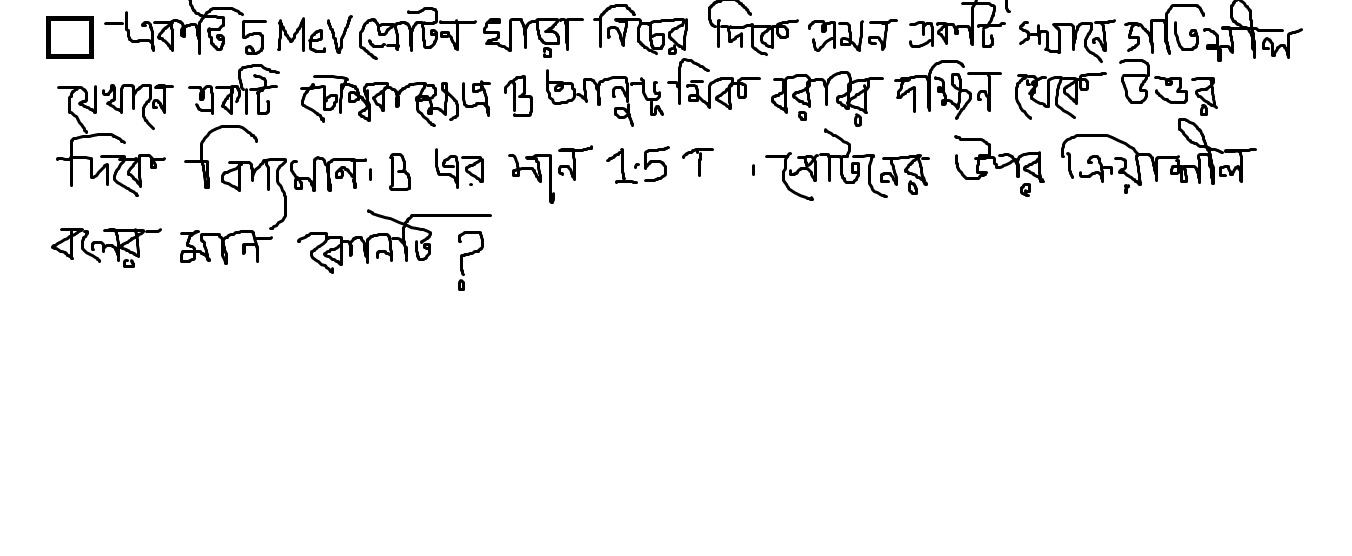 একটি 5 MeV প্রোটন খাড়া নিচের দিকে এমন একটি স্থানে গতিশীল
যেখানে একটি চৌম্বকক্ষেত্র B আনুভূমিক বরাবর দক্ষিন থেকে উত্তর
দিকে বিদ্যমান। B এর মান 1.5 T । প্রোটনের উপর ক্রিয়াশীল
বলের মান কোনটি?